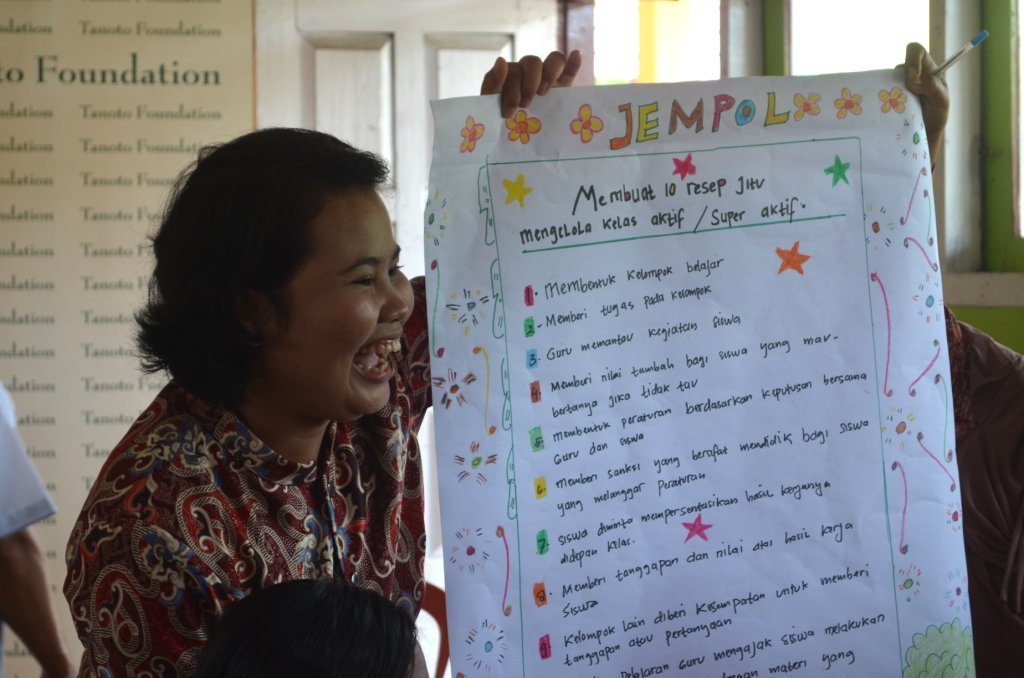 Tanoto Foundation
to Foundation
JEMPOL
Membuat 10 resep Jitu
mengelola kelas aktif / super aktif.
1. Membentuk kelompok belajar
2. Memberi tugas pada kelompok
3. Guru memantau kegiatan siswa
4. Memberi nilai tambah bagi siswa yang mau
bertanya jika tidak tau
5. Membentuk peraturan berdasarkan keputusan bersama
Guru dan siswa
6. Memberi sanksi yang bersifat mendidik bagi siswa
yang melanggar Peraturan
7. Siswa diminta mempersentasikan hasil kerjanya
didepan kelas.
8. Memberi tanggapan dan nilai atas hasil kerja
Siswa
9. Kelompok lain diberi kesempatan untuk memberi
tanggapan atau pertanyaan
Guru mengajak siswa melakukan
materi yang